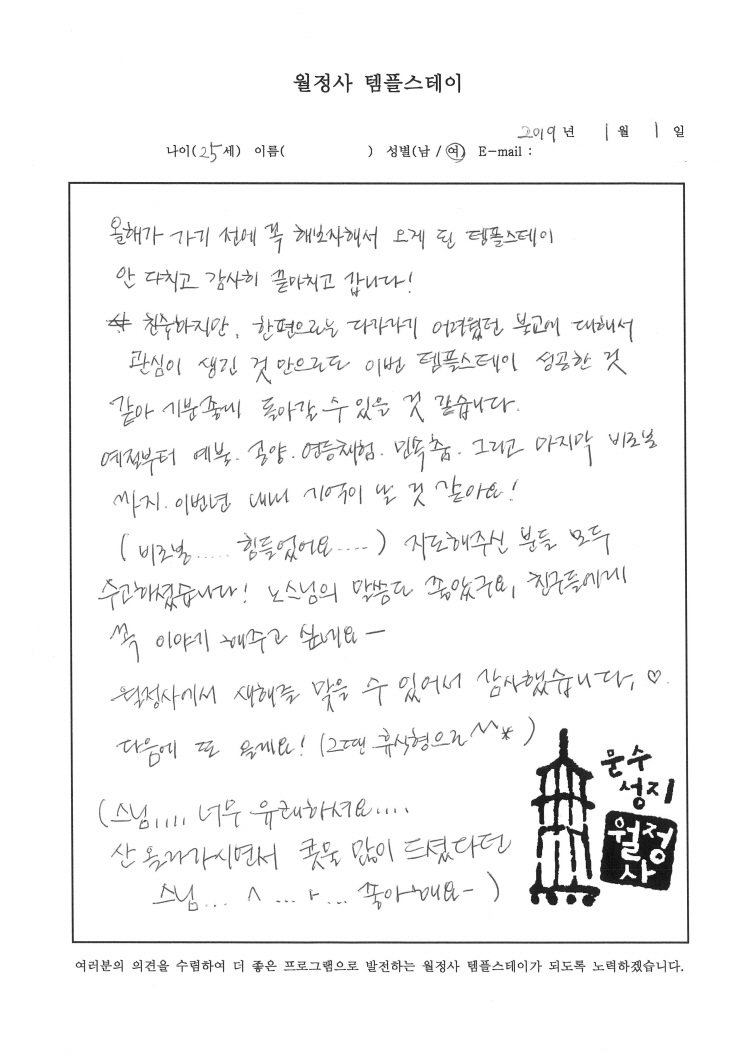 월정사 템플스테이
2019 년 1 월 1 일
나이(25세) 이름( ) 성별(남 / 여) E-mail :
올해가 가기 전에 꼭 해보자해서 오게 된 템플스테이
안 다치고 감사히 끝마치고 갑니다!
친숙하지만, 한편으로는 다가가기 어려웠던 불교에 대해서
관심이 생긴 것 만으로도 이번 템플스테이 성공한 것
같아 기분좋게 돌아갈 수 있을 것 같습니다.
예절부터 예불. 공양. 연등체험. 민속춤. 그리고 마지막 비로봉
까지. 이번년 내내 기억이 날 것 같아요!
(비로봉..... 힘들었어요....) 지도해주신 분들 모두
수고하셨습니다! 노스님의 말씀도 좋았구요, 친구들에게
꼭 이야기 해주고 싶네요-
월정사에서 새해를 맞을 수 있어서 감사했습니다, ♡.
다음에 또 올게요! (그땐 휴식형으로 ^^*)
(스님,,,, 너무 유쾌하셔요....
산 올라가시면서 콧물 많이 드셨다던
스님... 좋아해요-)
문수
성지
월정
사
여러분의 의견을 수렴하여 더 좋은 프로그램으로 발전하는 월정사 템플스테이가 되도록 노력하겠습니다.